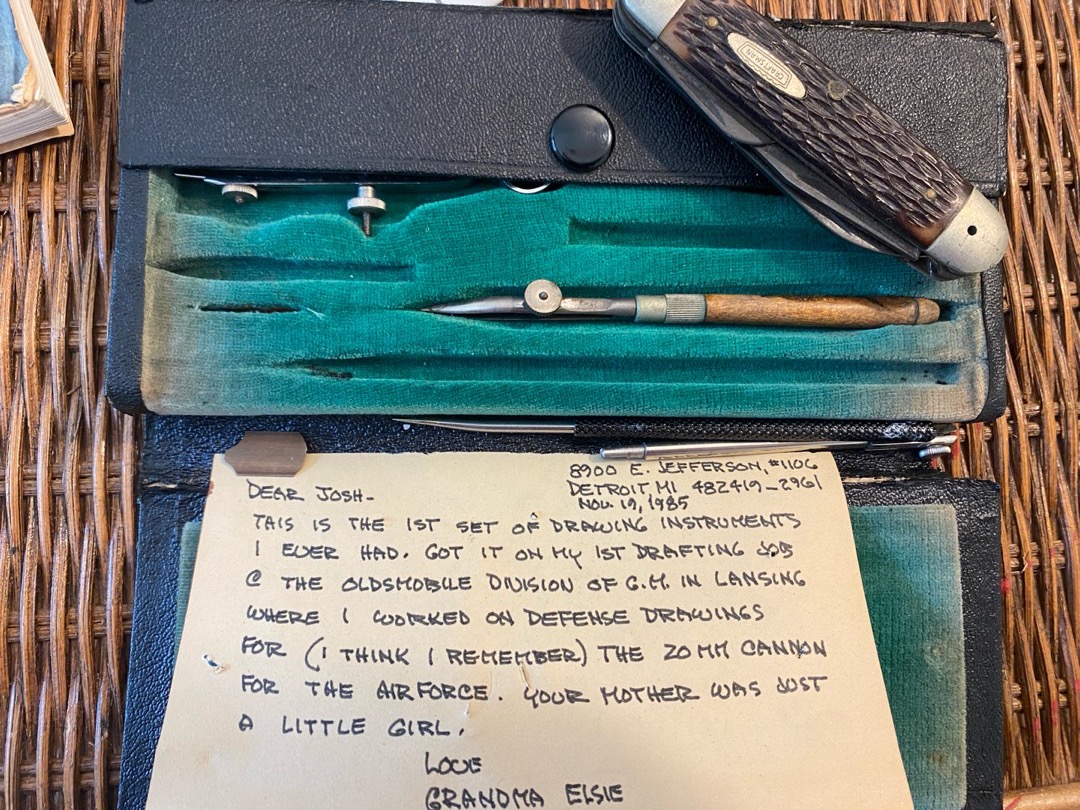 CRAFTSMAN
8900 E. JEFFERSON, #1106
DETROIT MI 482419-2961
NOV. 19, 1985
DEAR JOSH-
THIS IS THE 1ST SET OF DRAWING INSTRUMENTS
I EVER HAD. GOT IT ON MY 1ST DRAFTING JOB
@ THE OLDSMOBILE DIVISION OF G.M. IN LANSING
WHERE I WORKED ON DEFENSE DRAWINGS
FOR (I THINK I REMEMBER) THE 20MM CANNON
FOR THE AIRFORCE. YOUR MOTHER WAS JUST
A LITTLE GIRL.
LOVE
GRANDMA ELSIE